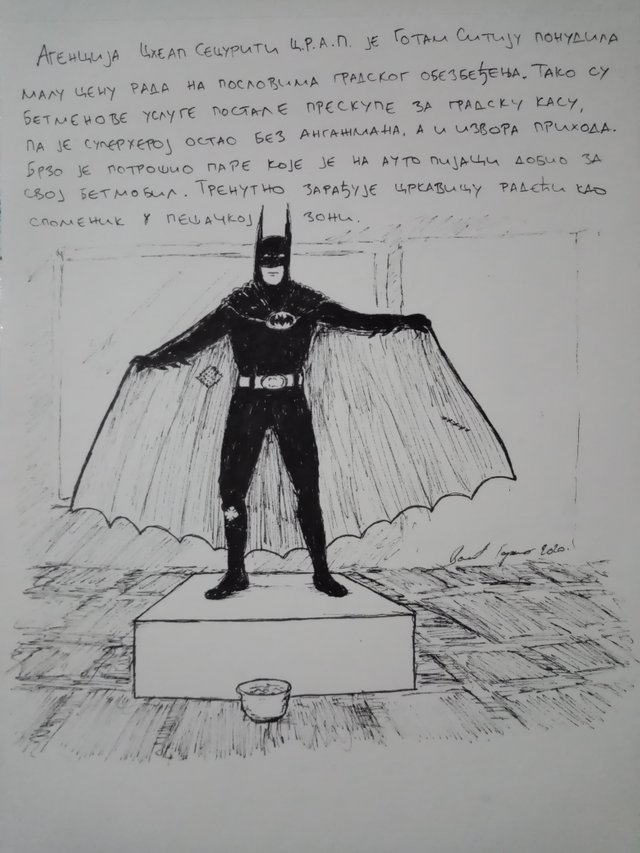 Агенција Цхеап Сецурити Ц.Р.А.П. је Готам Ситију понудила
малу цену рада на пословима градског обезбеђења. Тако су
Бетменове услуге постале прескупе за градску касу,
па је суперхерој остао без ангажмана, а и извора прихода.
Брзо је потрошио паре које је на ауто пијаци добио за
свој Бетмобил. Тренутно зарађује цркавицу радећи као
споменик у пешачкој зони.
2020.